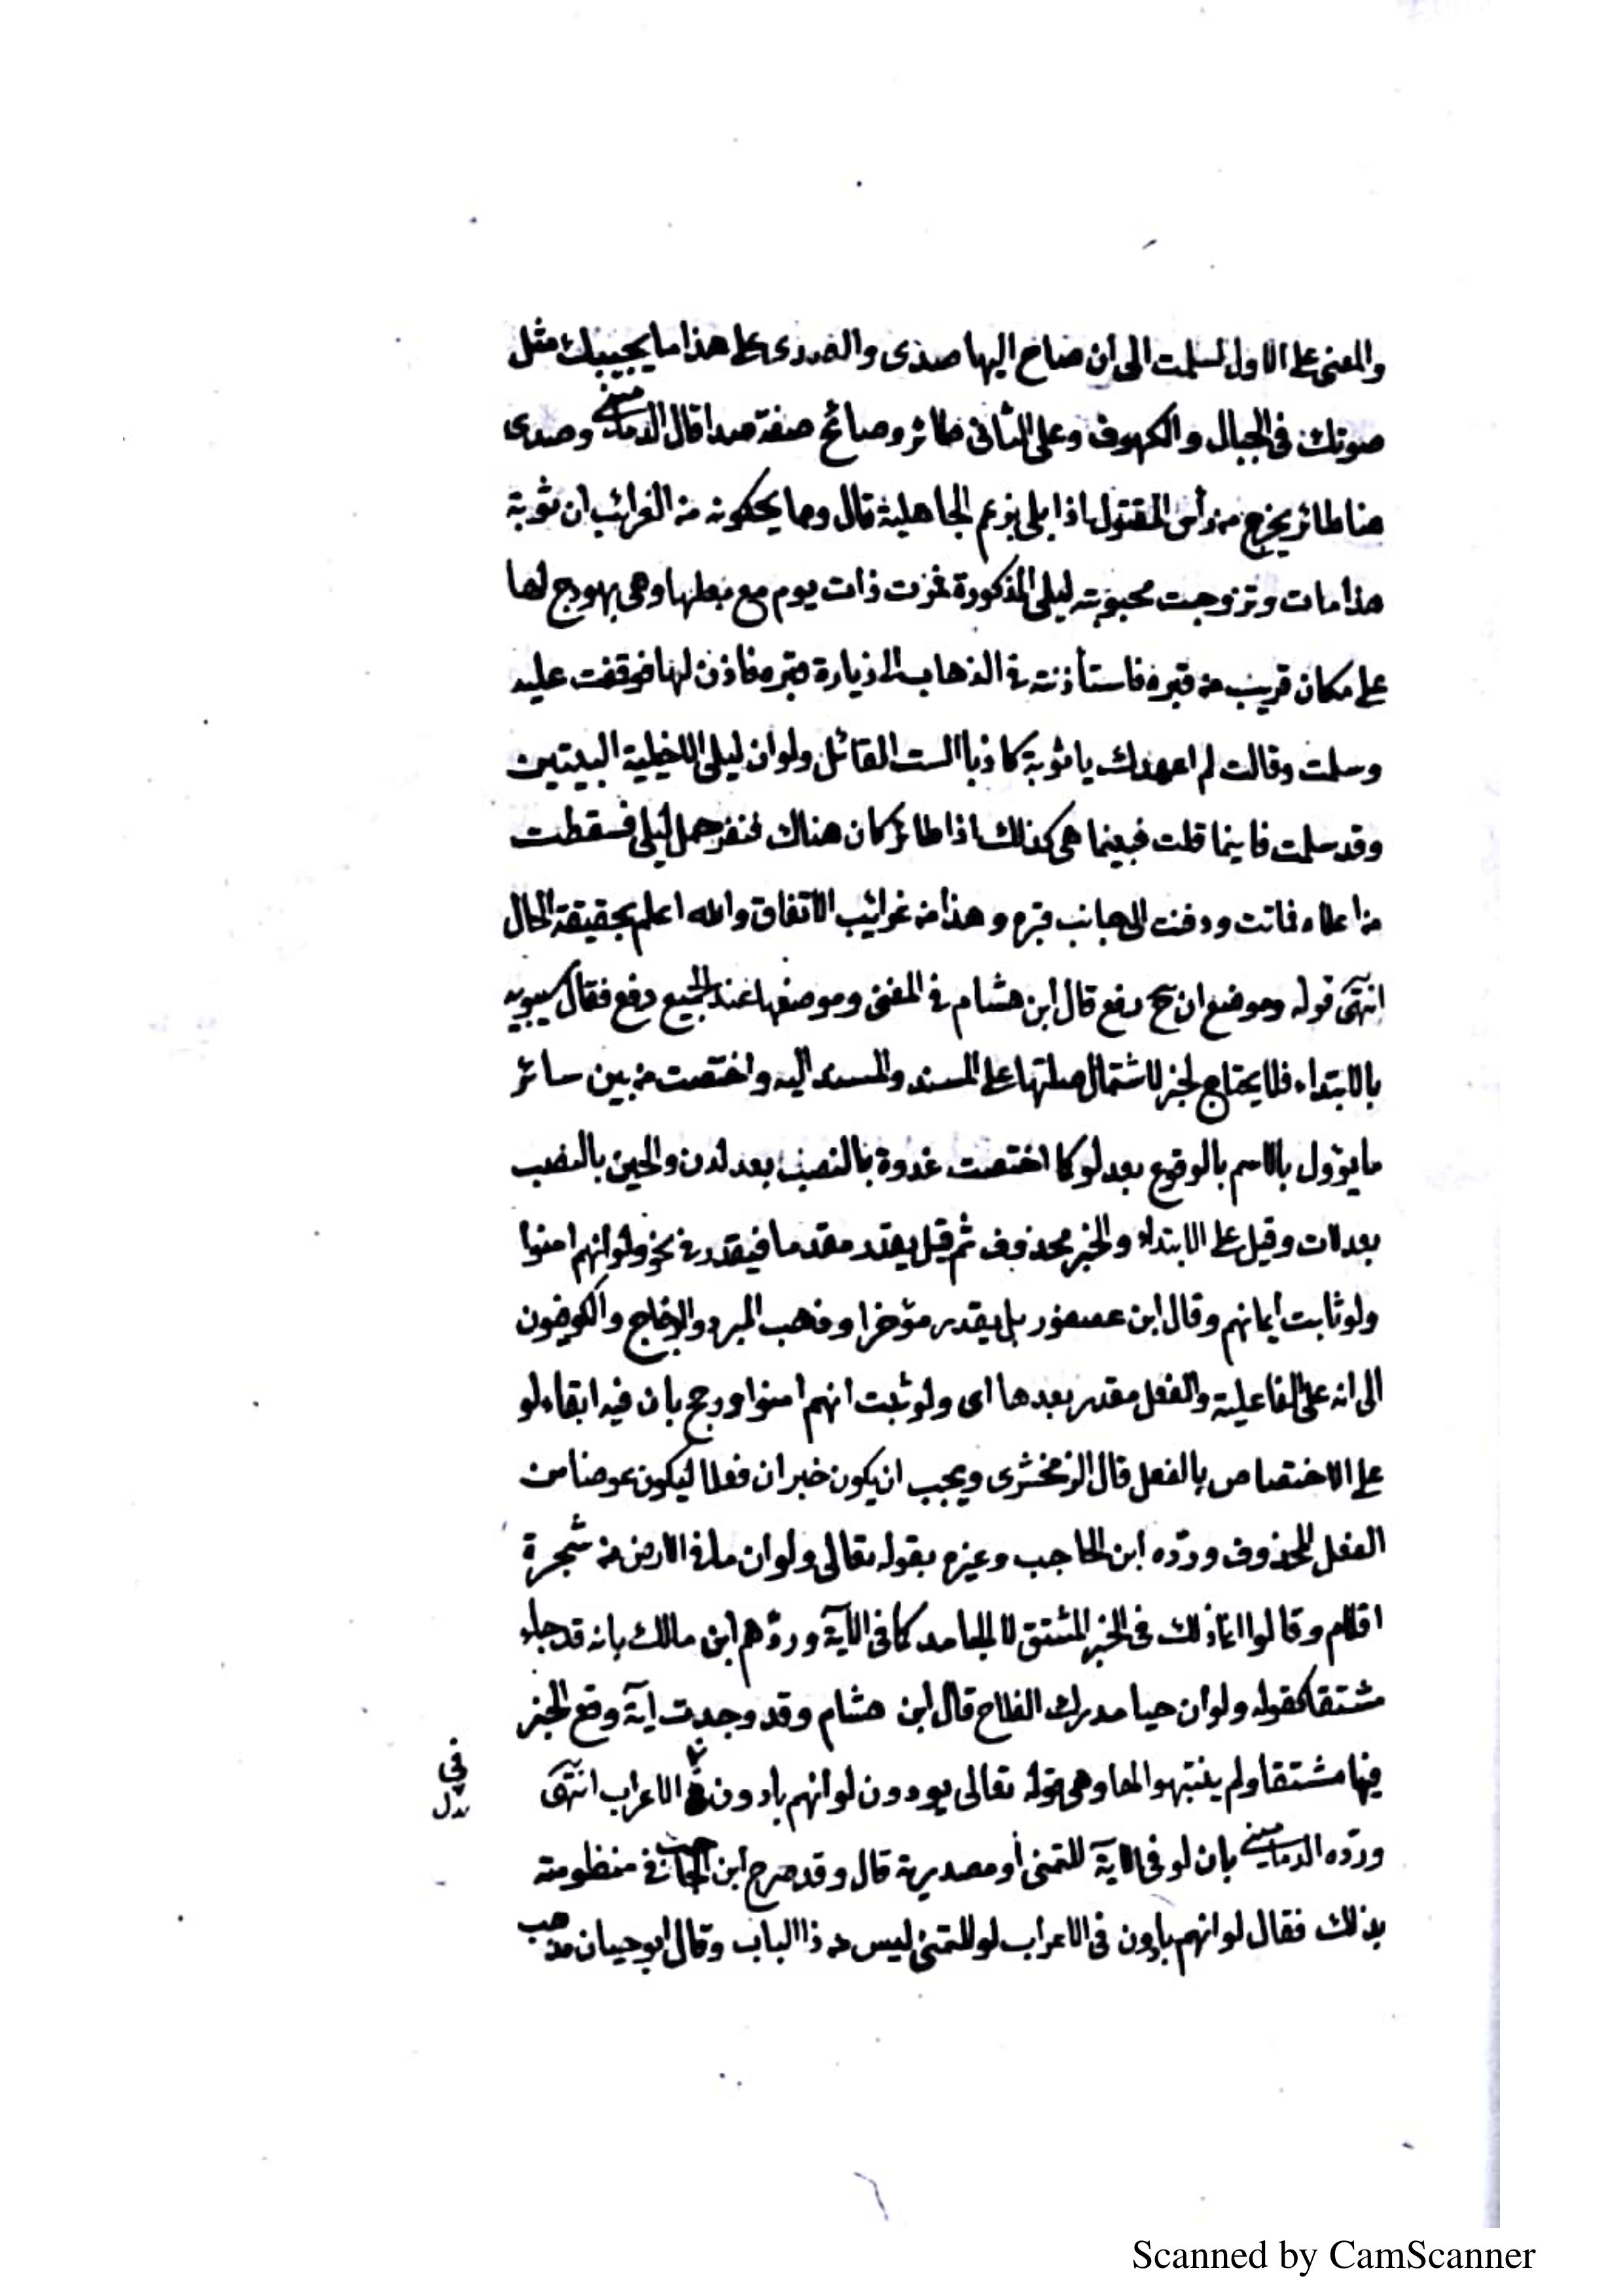 والمعنى على الاول لسلمت الى ان صاح اليها صدى والصدى على هذا ما يجيبك مثل
صوتك في الجبال والكهوف وعلى الثانى طائر وصائح صفة صدا قال الدمامينى وصدى
هنا طائر يخرج من رأس المقتول اذا بلى بزعم الجاهلية قال ومما يحكونه من الغرائب ان ثوبة
هذا مات وتزوجت محبوبته ليلى المذكورة فمرت ذات يوم مع بعلها وهى بهودج لها
على مكان قريب من قبره فاستأذنته في الذهاب الى زيارة قبره فاذن لها فوقفت عليه
وسلمت وقالت لم اعهدك ياثوبة كاذبا الست القائل ولو ان ليلى الاخيلية البيتين
وقد سلمت فاينما قلت فبينما هى كذلك اذا طائر كان هناك فنفر جمل ليلى فسقطت
من اعلاه فماتت ودفنت الى جانب قبره وهذا من غرائب الاتفاق والله اعلم بحقيقة الحال
انتهى قوله وموضع ان ح رفع قال ابن هشام في المغنى وموضعها عند الجميع رفع فقال سيبويه
بالابتداء فلا يحتاج لخبر لاشتمال صلتها على المسند والمسند اليه واختصت من بين سائر
مايؤول بالاسم بالوقوع بعد لو كما اختصت غدوة بالنصب بعد لدن والحين بالنصب
بعد لات وقيل على الابتداء والخبر محذوف ثم قيل يقدر مقدما فيقدر في نحو ولو انهم امنوا
ولو ثابت ايمانهم وقال ابن عصفور بل يقدر مؤخرا وذهب المبرد والزجاج والكوفيون
الى انه على الفاعلية والفعل مقدر بعدها اى ولو ثبت انهم امنوا ورجح بان فيه ابقاء لو
على الاختصاص بالفعل قال الزمخشرى ويجب ان يكون خبر ان فعلا ليكون عوضا من
الفعل المحذوف وردّه ابن الحاجب وغيره بقوله تعالى ولو ان ما في الارض من شجرة
اقلام وقالوا انما ذلك في الخبر المشتق لا الجامد كما فى الآية وردّهم ابن مالك بانه قد جاء
مشتقا كقوله ولو ان حيا مدرك الفلاح قال ابن هشام وقد وجدت آية وقع الخبر
فيها مشتقا ولم يتنبهوا لها وهى قوله تعالى يودون لو انهم بادون في الاعراب انتهى
في
بدل
وردّه الدمامينى بان لو فى الآية للتمنى أو مصدرية قال وقد صرح ابن الحاجب في منظومته
بذلك فقال لو انهم بادون فى الاعراب لو للتمنى ليس من ذا الباب وقال ابو حيان مذهب
Scanned by CamScanner